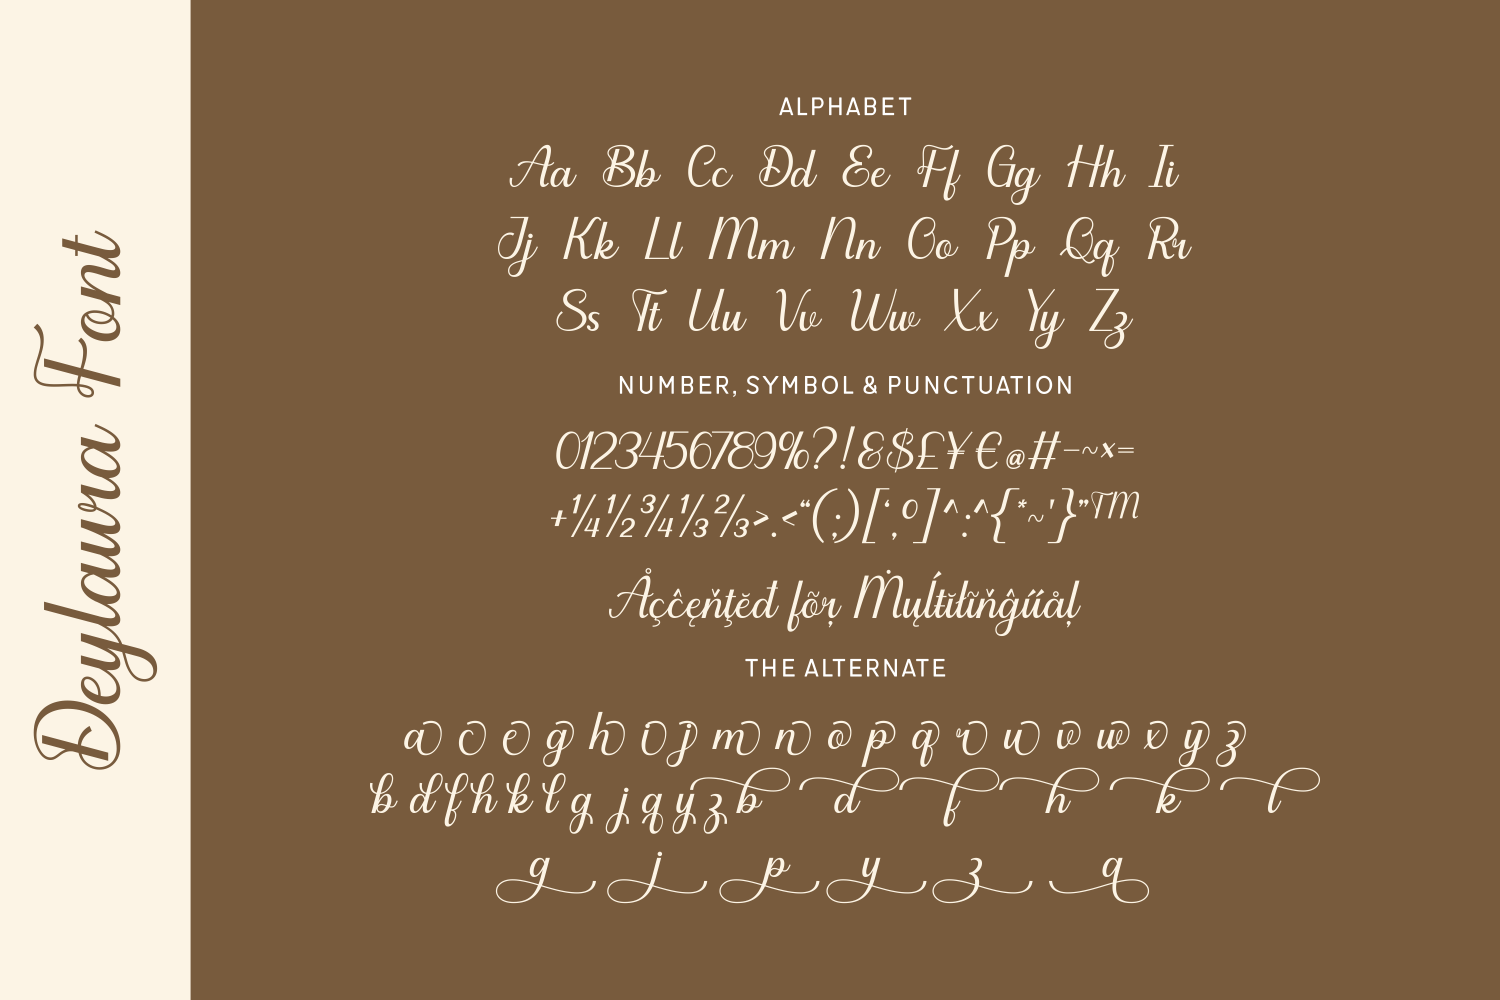 Deylawra Font
ALPHABET
Aa Bb Cc Dd Ee Ff Gg Hh Ii
Jj Kk Ll Mm Nn Oo Pp Qq Rr
Ss Tt Uu Vv Ww Xx Yy Zz
NUMBER, SYMBOL & PUNCTUATION
0123456789%?!&$£¥€@#−~×=
+¼½¾⅓⅔>.<“(;)[‘,º]^:^{*~'}”™
Åçĉęňţĕđ fõŗ Ṁųĺŧĭłĩňĝűåļ
THE ALTERNATE
a c e g h i j m n o p q r u v w x y z
b d f h k l g j q y z b d f h k l
g j p y z q